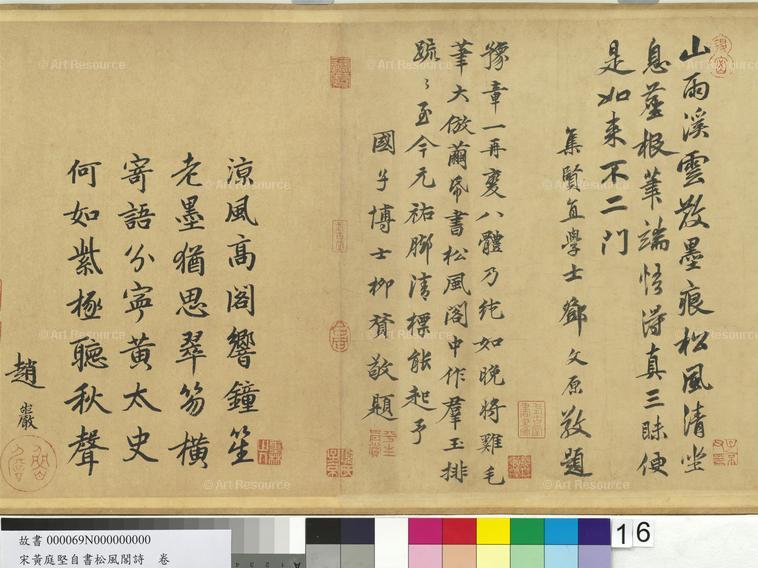 山雨溪雲散墨痕松風清坐
息塵根筆端悟得真三昧便
是如來不二門
集賢直學士鄧文原敬題
豫章一再變八體乃純如晚將雞毛
筆大倣繭帋書松風閣中作羣玉排
疏〻至今元祐脚清標能起予
國子博士柳貫敬題
涼風高閣響鐘笙
老墨猶思翠笏橫
寄語分寧黃太史
何如紫極聽秋聲
趙巖
© Art Resource
故書 000069N000000000
宋黃庭堅自書松風閣詩 卷
16